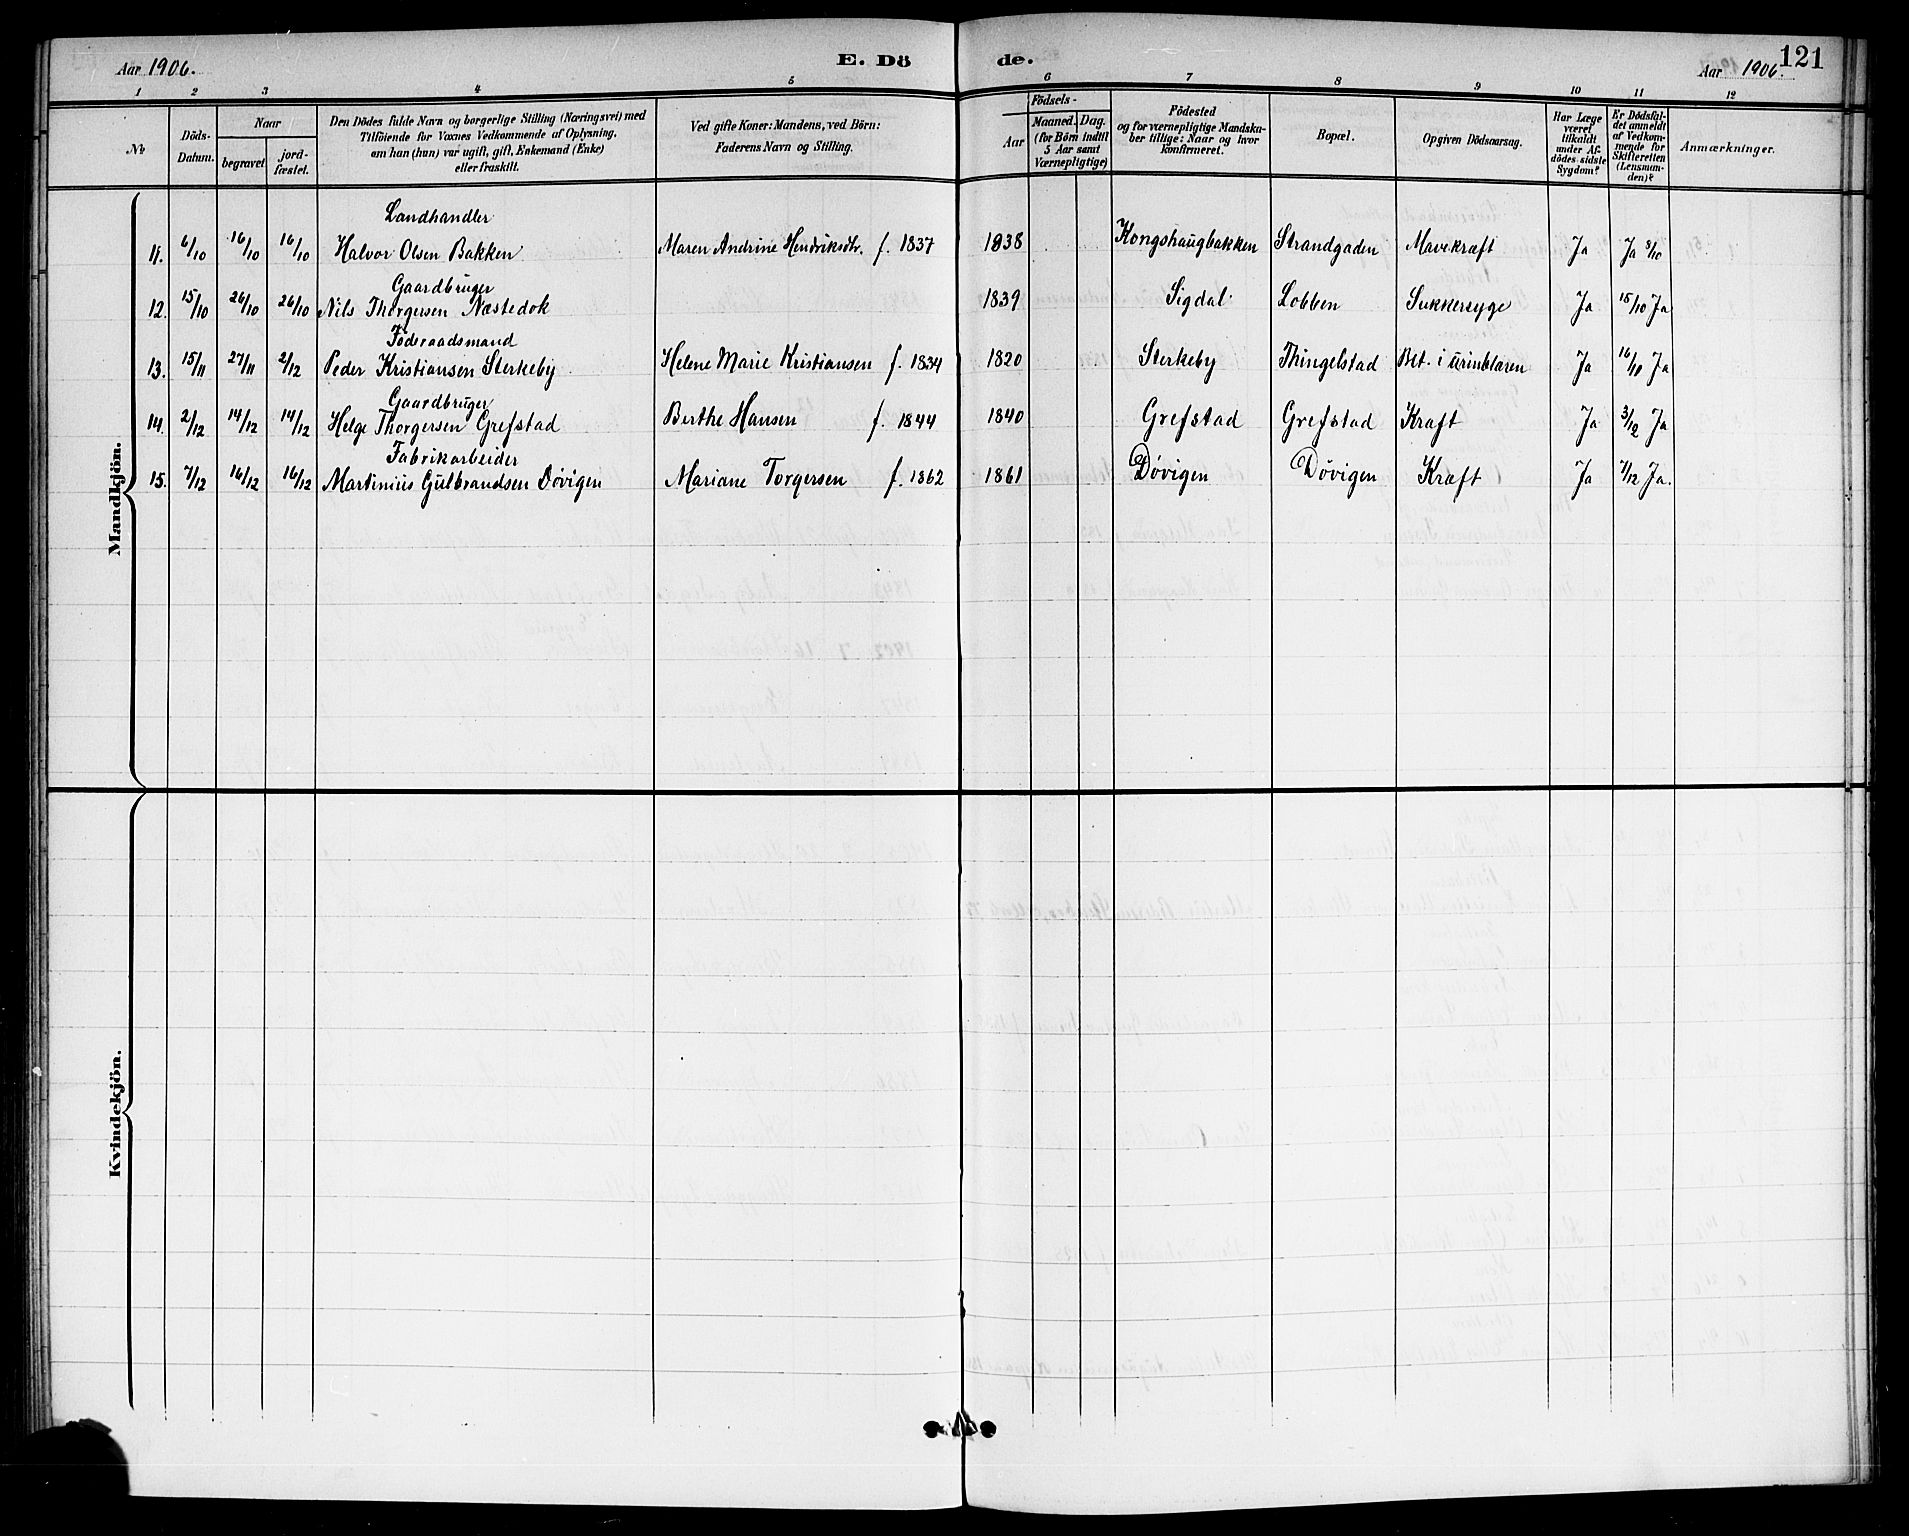 Aar 1906.
E. Dö
de.
Aar 1906.
121
1 2 3 4 5 6 7 8 9 10 11 12
No
Döds-
Datum.
Naar
begravet
jord-
fæstet.
Den Dödes fulde Navn og borgerlige Stilling (Næringsvei) med
Tilföiende for Voxnes Vedkommende af Oplysning,
om han (hun) var ugift, gift, Enkemand (Enke)
eller fraskilt.
Ved gifte Koner: Mandens, ved Börn:
Faderens Navn og Stilling.
Födsels-
Aar
Maaned. Dag.
(for Börn indtil
5 Aar samt
Værnepligtige)
Födested
og for værnepligtige Mandska-
ber tillige: Naar og hvor
konfirmeret.
Bopæl.
Opgiven Dödsaarsag.
Har Læge
været
tilkaldt
under Af-
dödes sidste
Sygdom?
Er Dödsfal-
det anmeldt
af Vedkom-
mende for
Skifteretten
(Lensman-
den)?
Anmærkninger.
Mandkjön.
Landhandler
11. 6/10 16/10 16/10 Halvor Olsen Bakken Maren Andrine Hendriksdr. f. 1837 1838 Kongshaugbakken Strandgaden Mavekræft Ja Ja 8/10
Gaardbruger
12. 15/10 26/10 26/10 Nils Thorgersen Næstedok 1839 Sigdal Lobben Sukkersyge Ja 15/10 Ja
Føderaadsmand
13. 15/11 27/11 2/12 Peder Kristiansen Sterkeby Helene Marie Kristiansen f. 1834 1820 Sterkeby Thingelstad Bet. i Urinblæren Ja 16/11 Ja
Gaardbruger
14. 2/12 14/12 14/12 Helge Thorgersen Grefstad Berthe Hansen f. 1844 1840 Grefstad Grefstad Kræft Ja 3/12 Ja
Fabrikarbeider
15. 7/12 16/12 16/12 Martinius Gulbrandsen Døvigen Mariane Torgersen f. 1862 1861 Døvigen Døvigen Kræft Ja 7/12 Ja.
Kvindekjön.